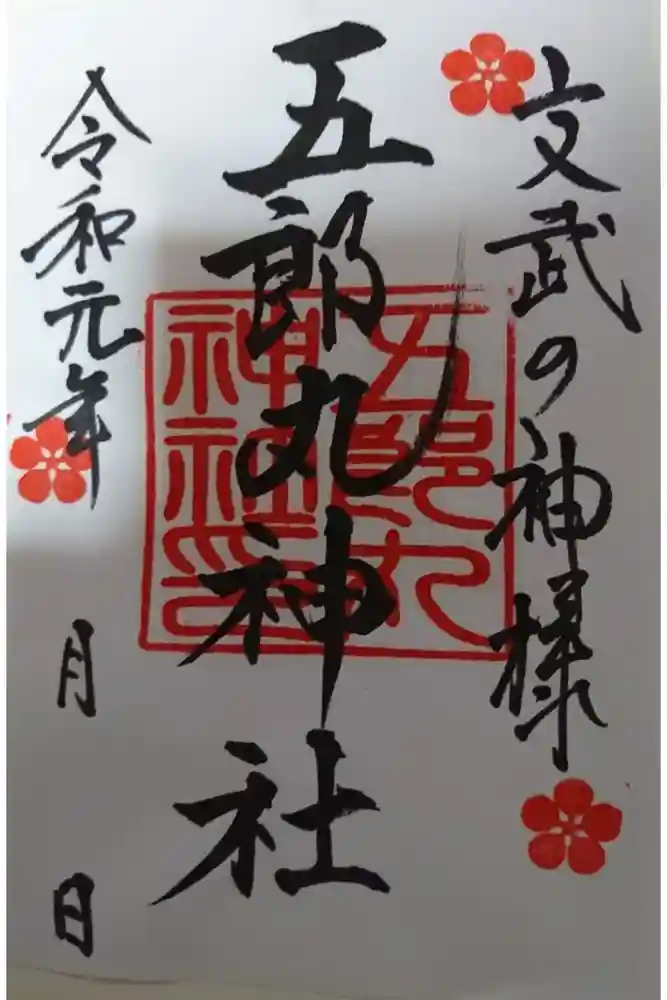 文武の神様
五郎丸神社
五郎丸
神社印
令和元年 月 日